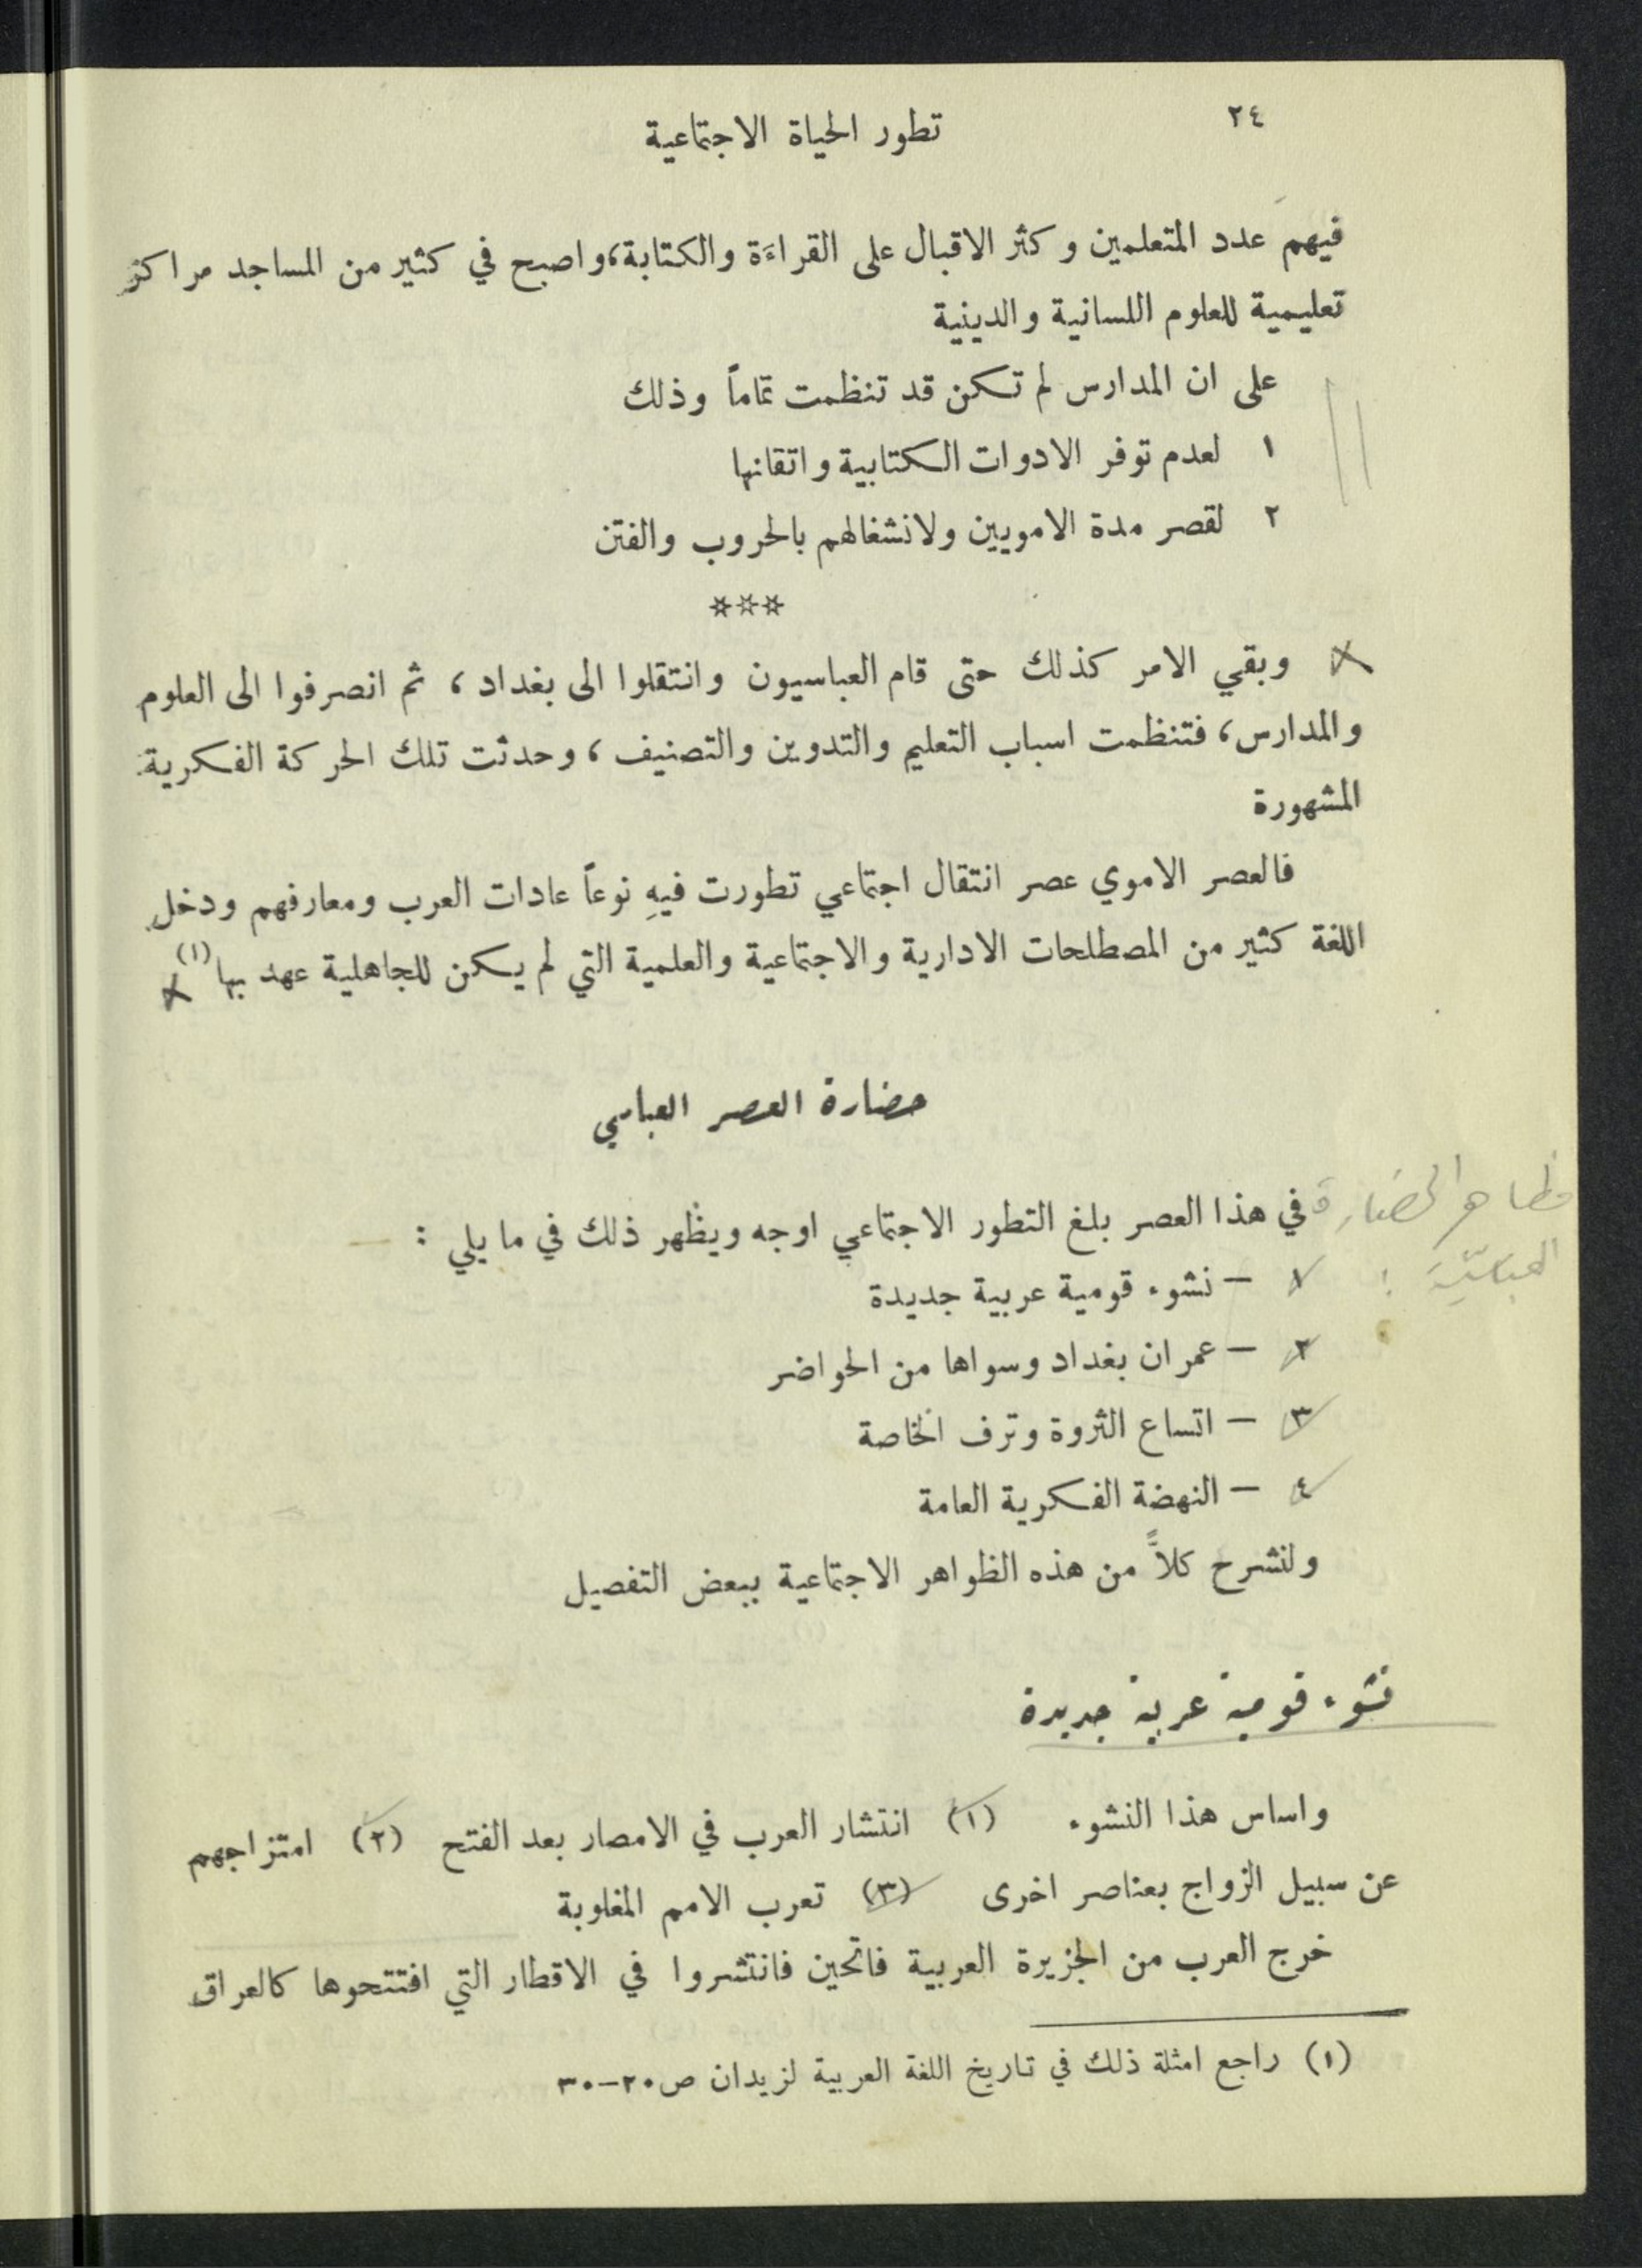 ٢٤
تطور الحياة الاجتماعية
فيهم عدد المتعلمين وكثر الاقبال على القراءَة والكتابة، واصبح في كثير من المساجد مراكز
تعليمية للعلوم اللسانية والدينية
على ان المدارس لم تكن قد تنظمت تماماً وذلك
١ لعدم توفر الادوات الكتابية واتقانها
٢ لقصر مدة الامويين ولانشغالهم بالحروب والفتن
***
وبقي الامر كذلك حتى قام العباسيون وانتقلوا الى بغداد، ثم انصرفوا الى العلوم
والمدارس، فتنظمت اسباب التعليم والتدوين والتصنيف، وحدثت تلك الحركة الفكرية
المشهورة
فالعصر الاموي عصر انتقال اجتماعي تطورت فيهِ نوعاً عادات العرب ومعارفهم ودخل
اللغة كثير من المصطلحات الادارية والاجتماعية والعلمية التي لم يكن للجاهلية عهد بها (١)
حضارة العصر العباسي
مظاهر الحضارة
العباسيّة :
في هذا العصر بلغ التطور الاجتماعي اوجه ويظهر ذلك في ما يلي :
١ – نشوء قومية عربية جديدة
٢ – عمران بغداد وسواها من الحواضر
٣ – اتساع الثروة وترف الخاصة
٤ – النهضة الفكرية العامة
ولنشرح كلاًّ من هذه الظواهر الاجتماعية ببعض التفصيل
نشوء قومية عربية جديدة
واساس هذا النشوء (١) انتشار العرب في الامصار بعد الفتح (٢) امتزاجهم
عن سبيل الزواج بعناصر اخرى (٣) تعرب الامم المغلوبة
خرج العرب من الجزيرة العربية فاتحين فانتشروا في الاقطار التي افتتحوها كالعراق
(١) راجع امثلة ذلك في تاريخ اللغة العربية لزيدان ص ٢٠–٣٠